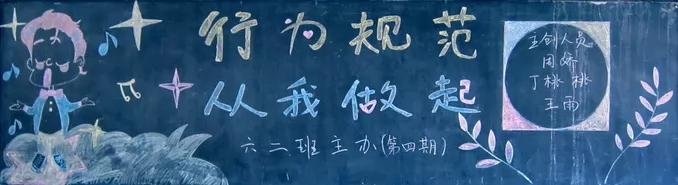 行为规范
从我做起
六二班主办(第四期)
主创人员
周娇
丁桃桃
王雨